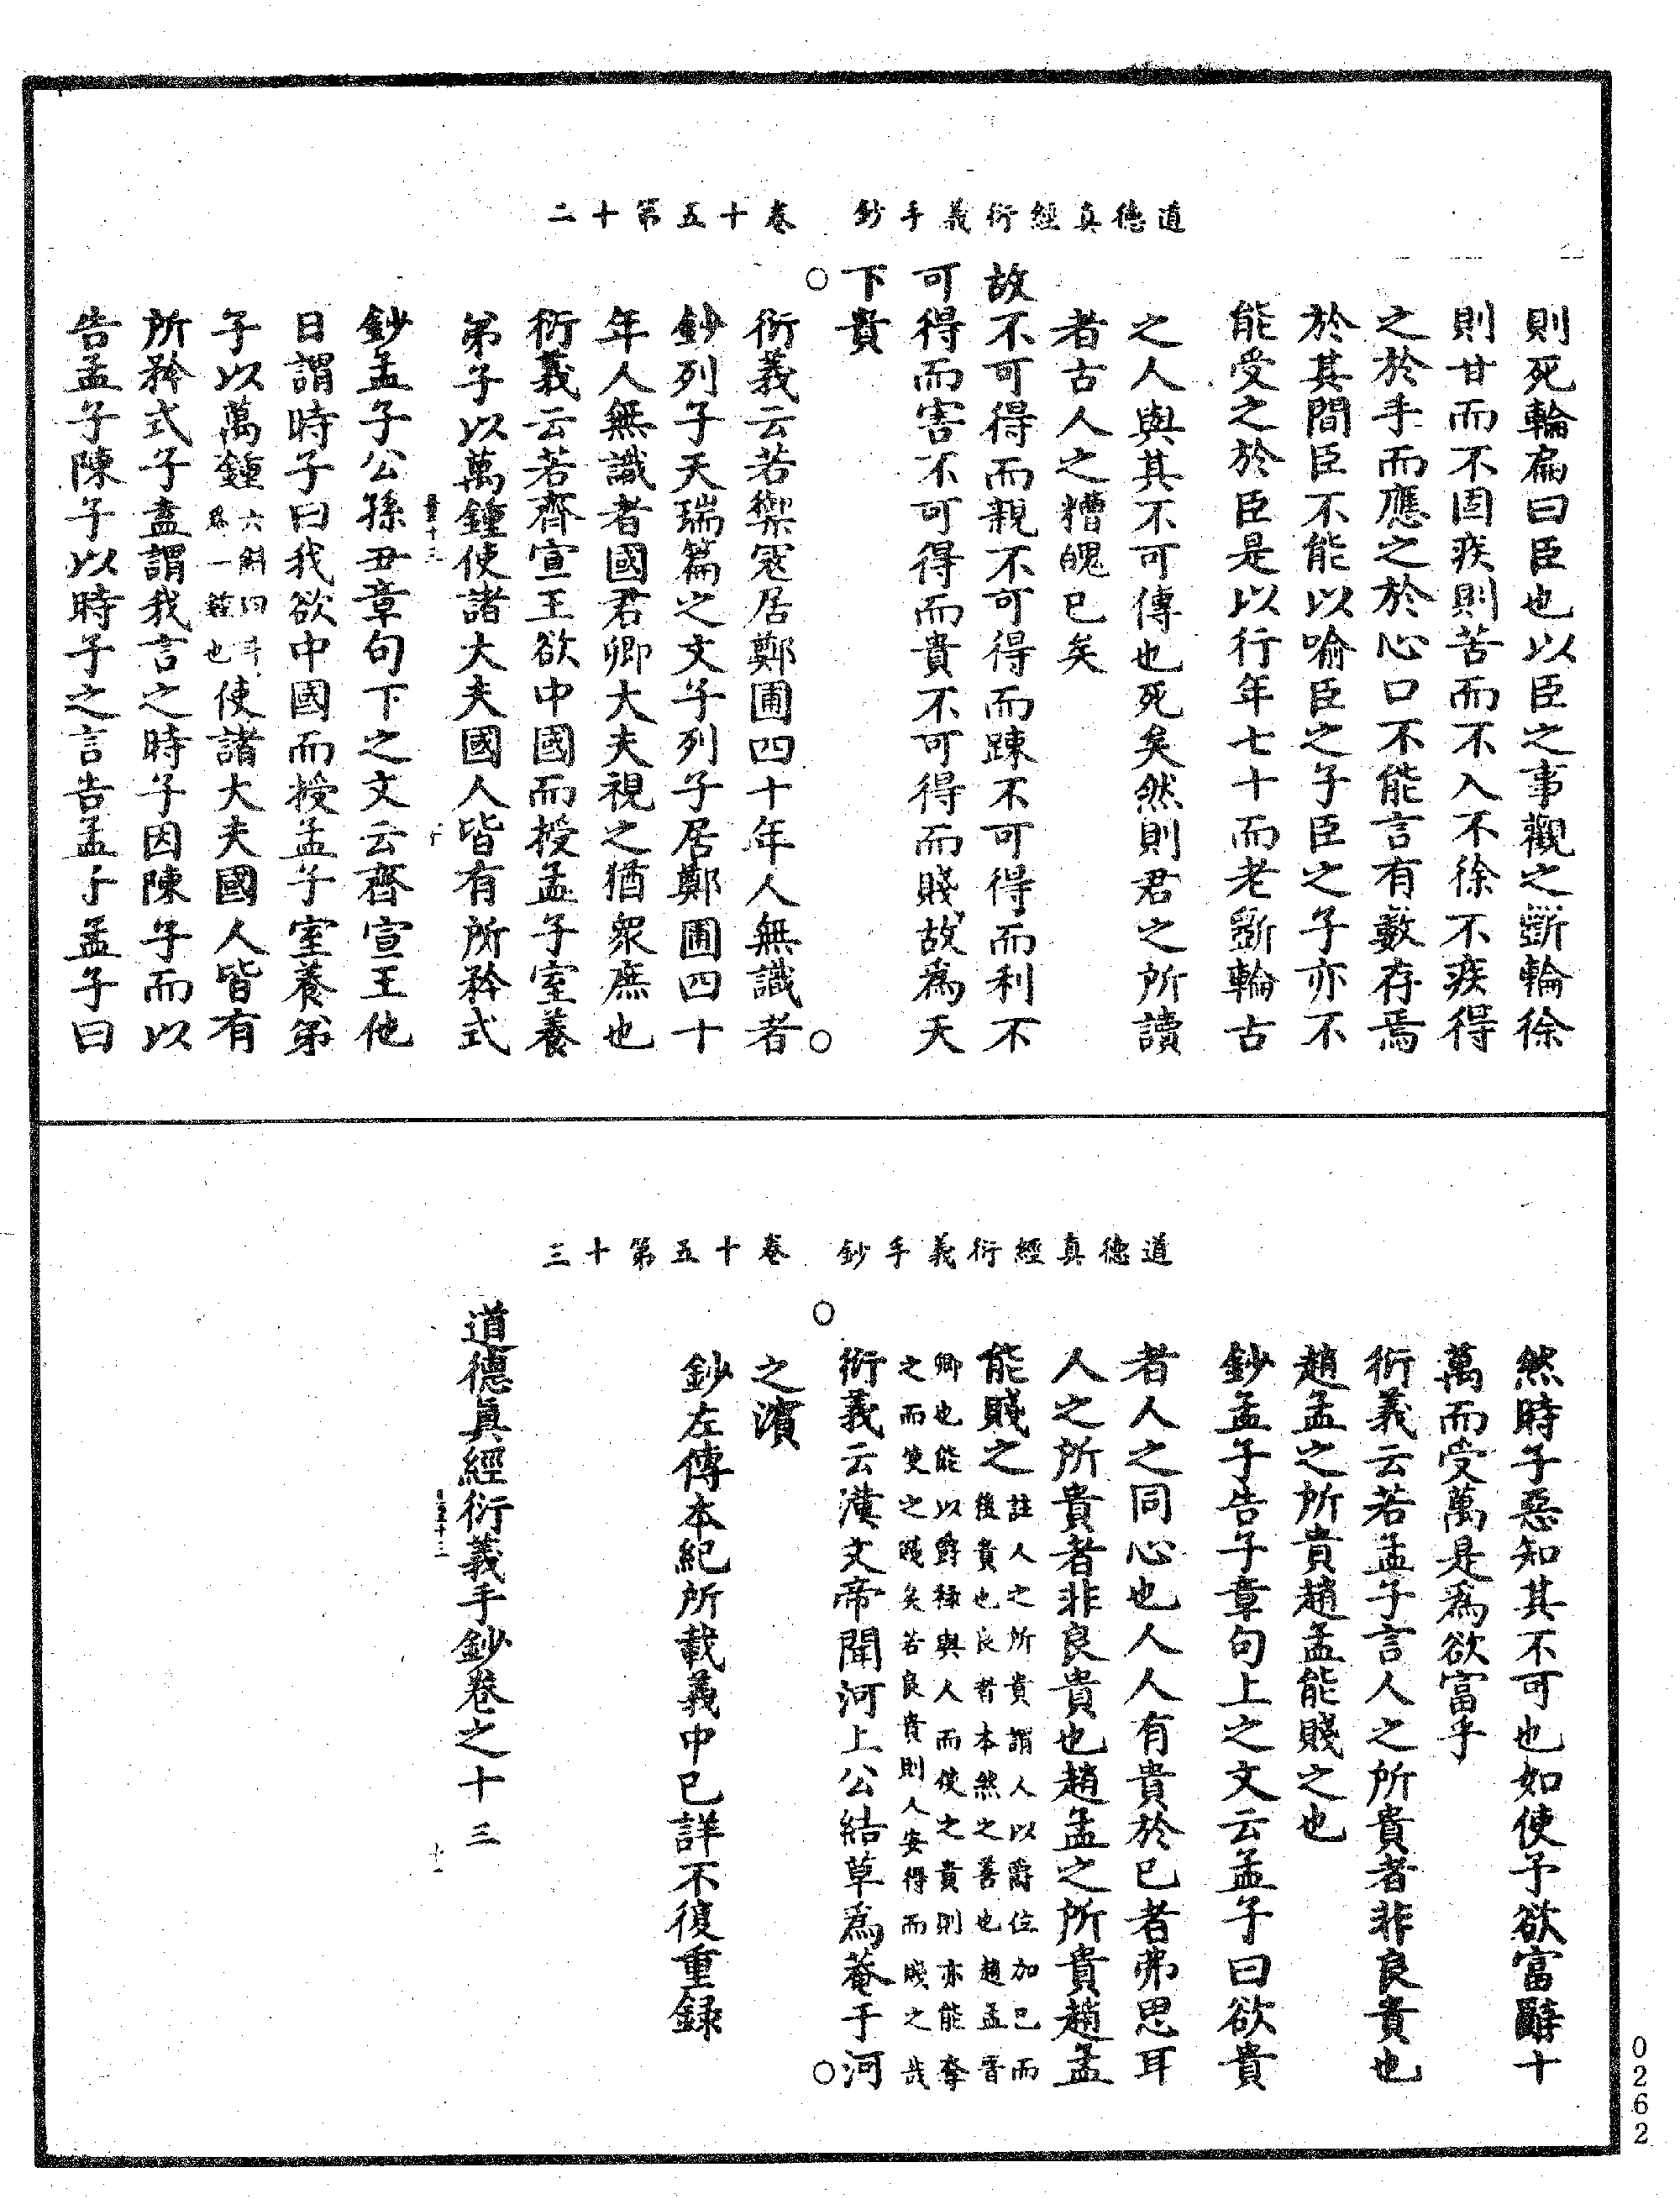 道德真經衍義手鈔　卷十五第十二
則死輪扁曰臣也以臣之事觀之斲輪徐
則甘而不固疾則苦而不入不徐不疾得
之於手而應之於心口不能言有數存焉
於其間臣不能以喻臣之子臣之子亦不
能受之於臣是以行年七十而老斲輪古
之人與其不可傳也死矣然則君之所讀
者古人之糟魄已矣
故不可得而親不可得而踈不可得而利不
可得而害不可得而貴不可得而賤故為天
下貴
衍義云若禦寇居鄭圃四十年人無識者
鈔列子天瑞篇之文子列子居鄭圃四十
年人無識者國君卿大夫視之猶衆庶也
衍義云若齊宣王欲中國而授孟子室養
弟子以萬鍾使諸大夫國人皆有所矜式
鈔孟子公孫丑章句下之文云齊宣王他
日謂時子曰我欲中國而授孟子室養弟
子以萬鍾六斛四斗為一鍾也使諸大夫國人皆有
所矜式子盍謂我言之時子因陳子而以
告孟子陳子以時子之言告孟子孟子曰
道德真經衍義手鈔　卷十五第十三
然時子惡知其不可也如使予欲富辭十
萬而受萬是為欲富乎
衍義云若孟子言人之所貴者非良貴也
趙孟之所貴趙孟能賤之也
鈔孟子告子章句上之文云孟子曰欲貴
者人之同心也人人有貴於已者弗思耳
人之所貴者非良貴也趙孟之所貴趙孟
能賤之註人之所貴謂人以爵位加已而後貴也良者本然之善也趙孟晉
卿也能以爵祿與人而使之貴則亦能奪之而使之賤矣若良貴則人安得而賤之哉
衍義云漢文帝聞河上公結草為菴于河
之濱
鈔左傳本紀所載義中已詳不復重録
道德眞經衍義手鈔卷之十三
0262